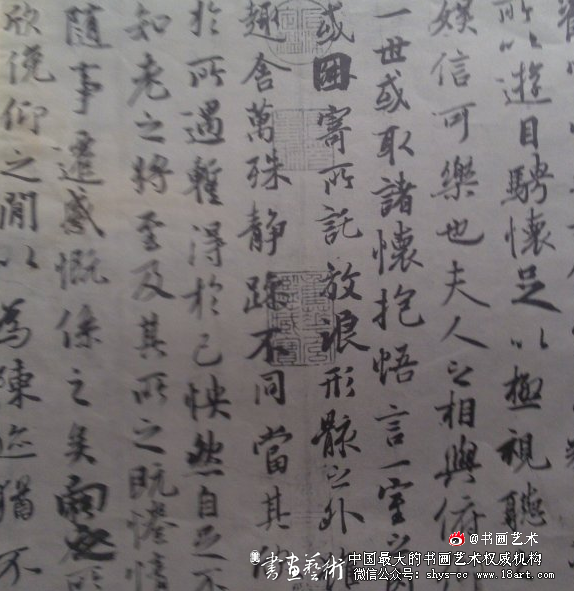 所以遊目騁懷足以極視聽
娛信可樂也夫人之相與俯
一世或取諸懷抱悟言一室之
或因寄所託放浪形骸之外雖
趣舍萬殊静躁不同當其
於所遇蹔得於己怏然自足不
知老之將至及其所之既惓情
隨事遷感慨係之矣向之所
欣俛仰之閒以為陳迹猶不
@书画艺术
書畫藝術 中国最大的书画艺术权威机构
微信公众号: shys-cc www.18art.com